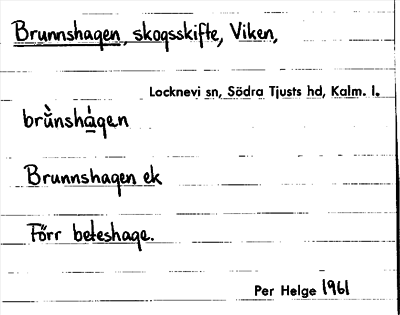 Brunnshagen, skogsskifte, Viken,
Locknevi sn, Södra Tjusts hd, Kalm. l.
brǜnshá̱gen
Brunnshagen ek
Förr beteshage.
Per Helge 1961